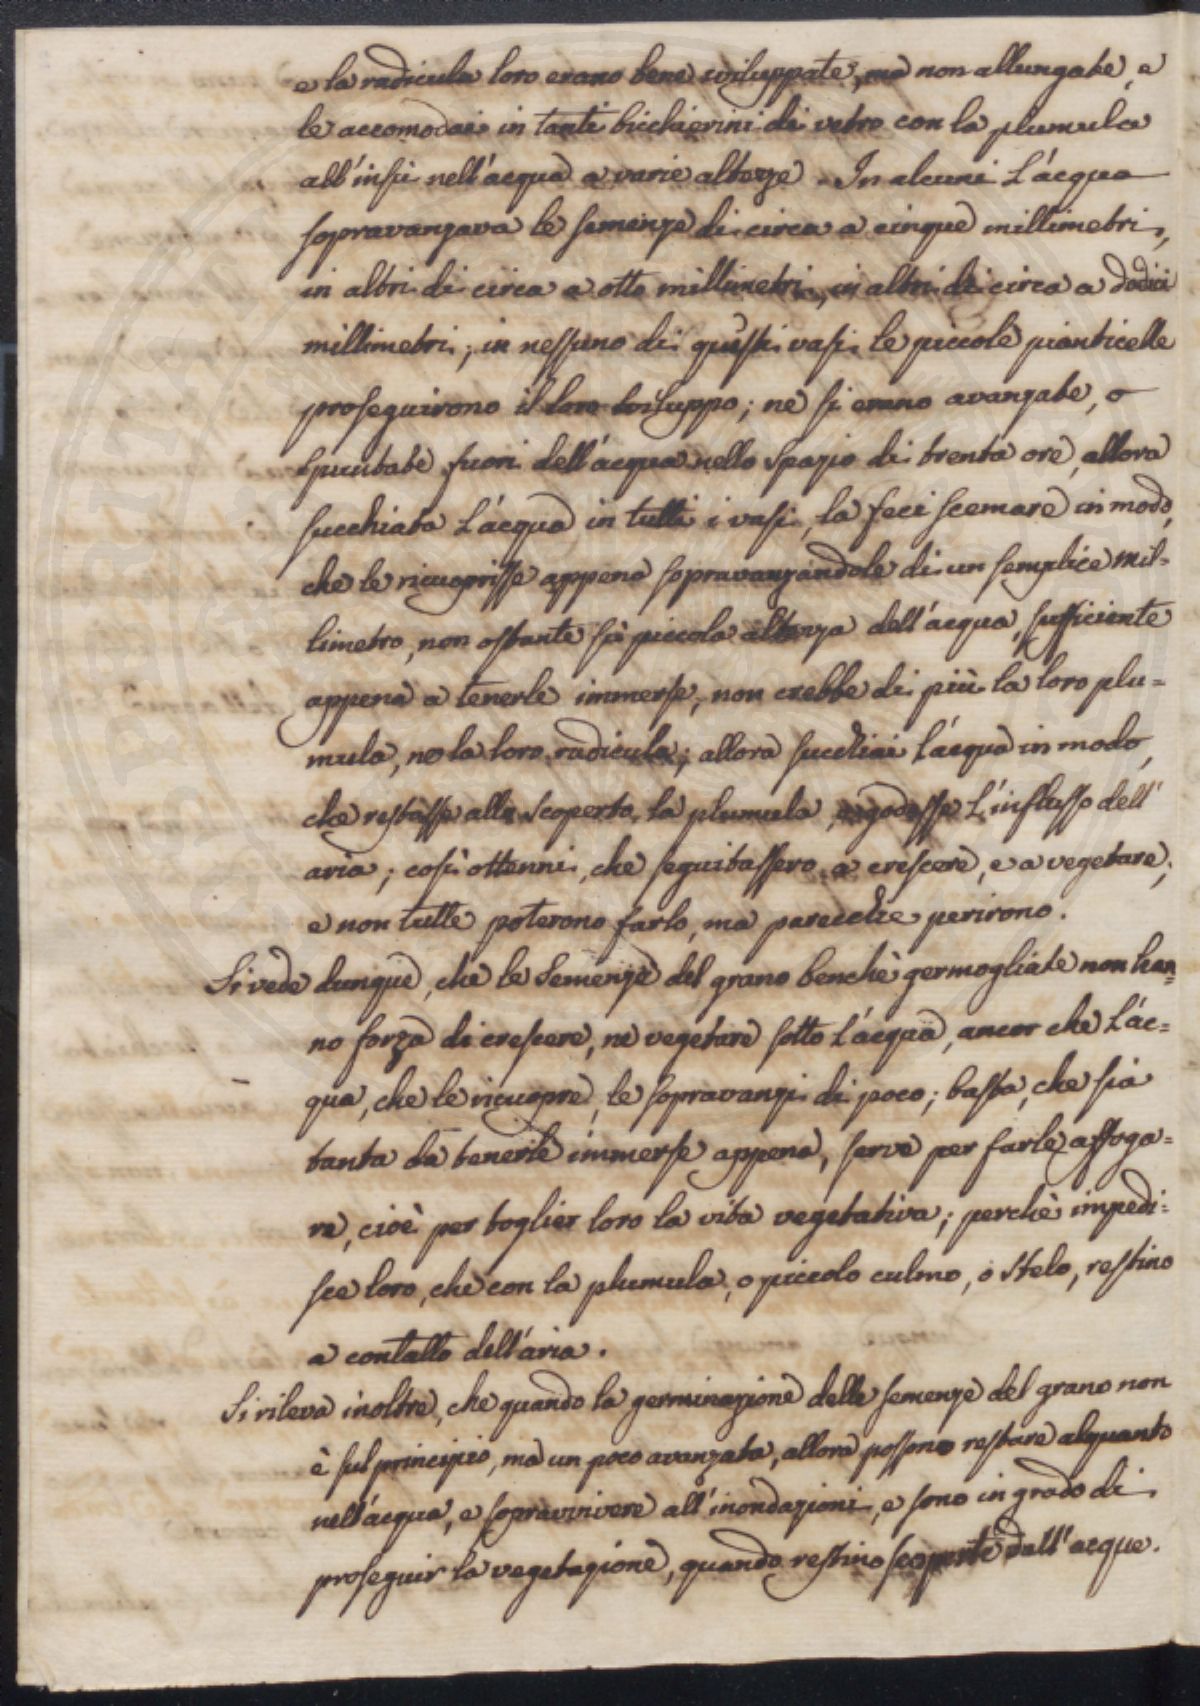 e la radicula loro erano bene sviluppate, ma non allungate, e
le accomodai in tanti bicchierini di vetro con la plumula
all'insù nell'acqua a varie altezze. In alcuni l'acqua
sopravanzava le semenze di circa a cinque millimetri,
in altri di circa a otto millimetri, in altri di circa a dodici
millimetri; in nessuno di questi vasi le piccole pianticelle
proseguirono il loro sviluppo; nè si erano avanzate, o
spuntate fuori dell'acqua nello spazio di trenta ore, allora
succhiata l'acqua in tutti i vasi, la feci scemare in modo,
che le ricuoprisse appena sopravanzandole di un semplice mil=
limetro, non ostante sì piccola altezza dell'acqua, sufficiente
appena a tenerle immerse, non crebbe di più la loro plu=
mula, nè la loro radicula; allora succhiai l'acqua in modo,
che restasse allo scoperto la plumula, e godesse l'influsso dell'
aria; così ottenni, che seguitassero a crescere, e a vegetare;
e non tutte poterono farlo, ma parecchie perirono.
Si vede dunque, che le semenze del grano benchè germogliate non han=
no forza di crescere, nè vegetare sotto l'acqua, ancor che l'ac=
qua, che le ricuopre, le sopravanzi di poco; basta, che sia
tanta da tenerle immerse appena, serve per farle affoga=
re, cioè per toglier loro la vita vegetativa; perchè impedi=
sce loro, che con la plumula, o piccolo culmo, o stelo, restino
a contatto dell'aria.
Si rileva inoltre, che quando la germinazione delle semenze del grano non
è sul principio, ma un poco avanzata, allora possono restare alquanto
nell'acqua, e sopravivere all'inondazioni, e sono in grado di
proseguir la vegetazione, quando restino scoperte dall'acque.